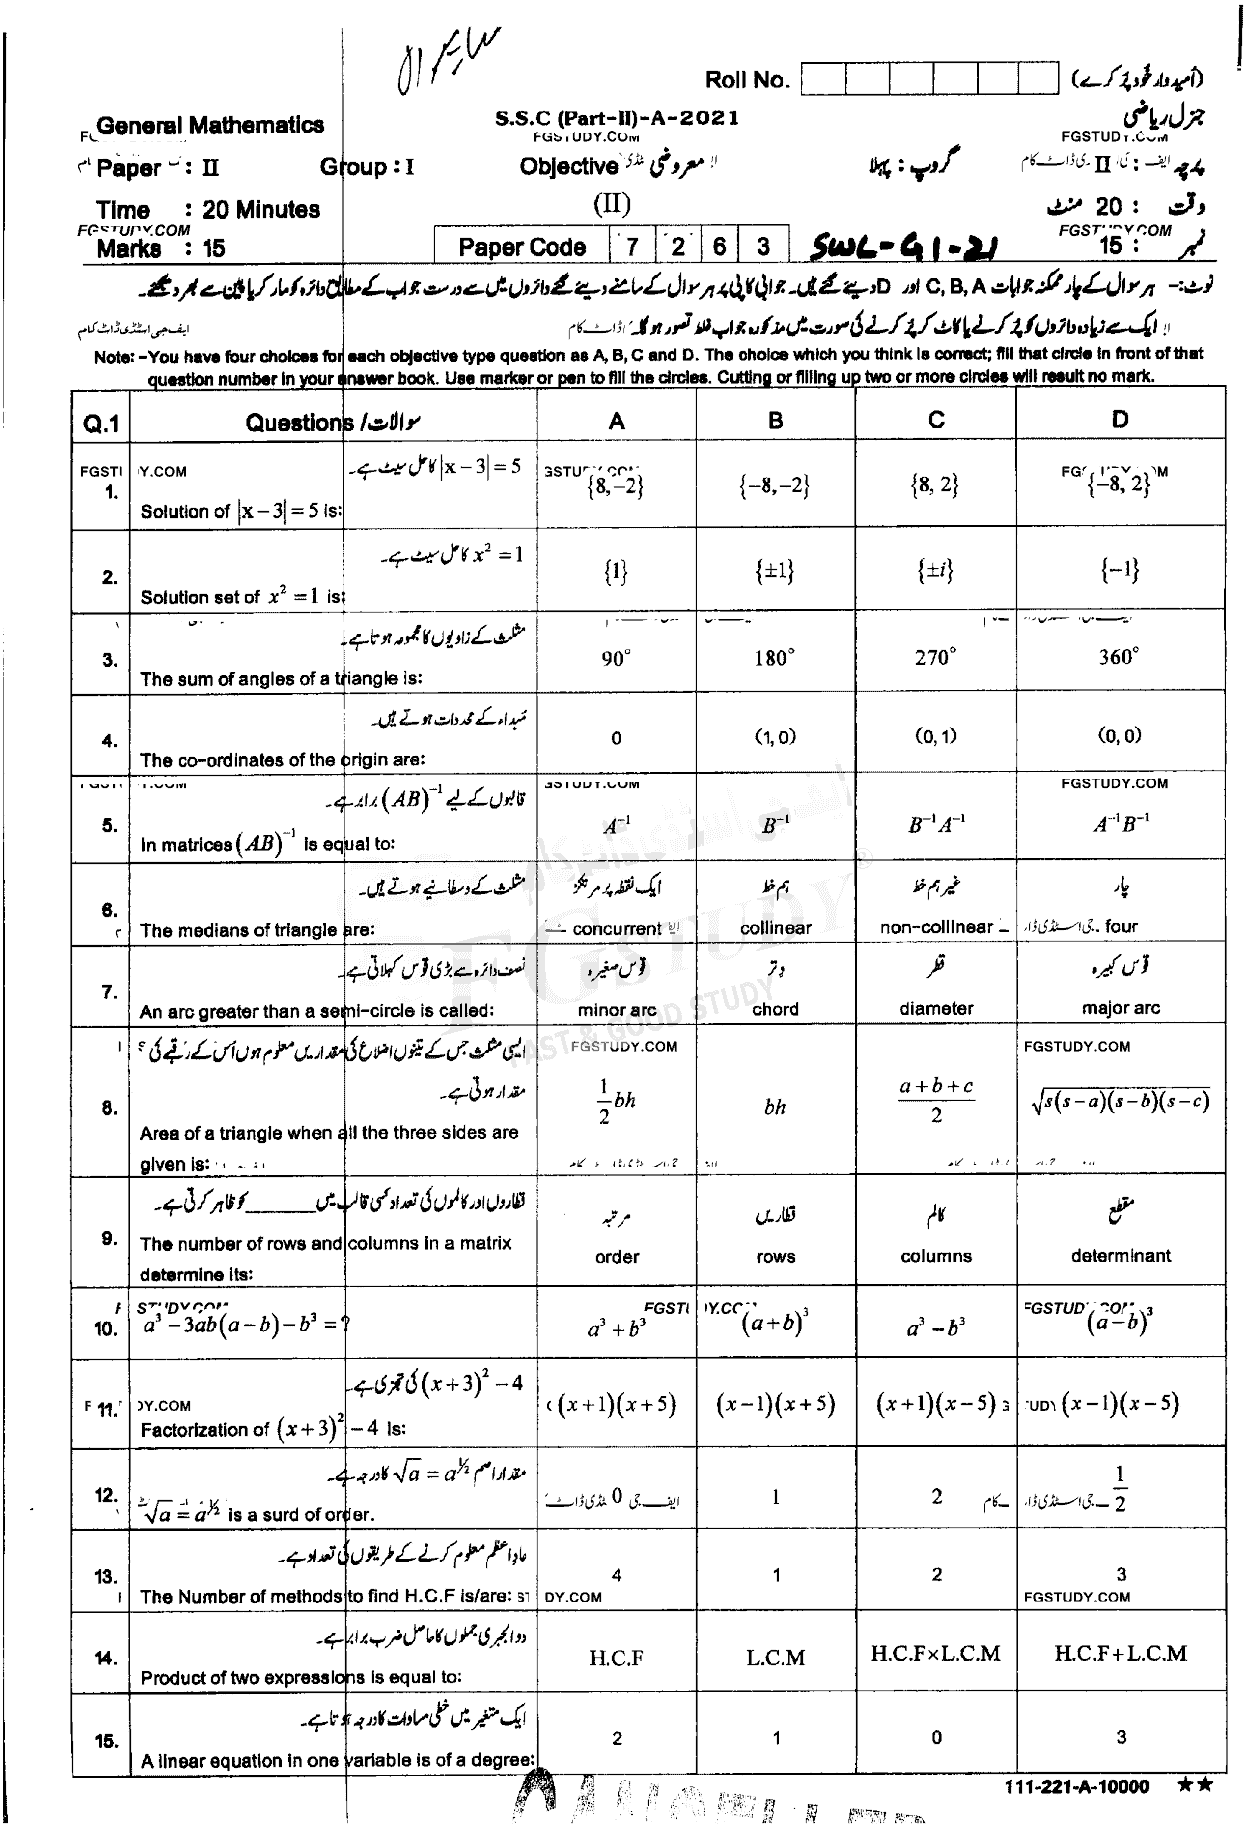 Roll No. (اُمیدوار خود پُر کرے)
General Mathematics S.S.C (Part-II)-A-2021 جنرل ریاضی
FGSTUDY.COM FGSTUDY.COM
Paper : II Group : I Objective معروضی گروپ : پہلا پرچہ : II
Time : 20 Minutes (II) وقت : 20 منٹ
FGSTUDY.COM FGSTUDY.COM
Marks : 15 Paper Code 7 2 6 3 SWL-G1-21 نمبر : 15
نوٹ:- ہر سوال کے چار ممکنہ جوابات A, B, C اور D دیئے گئے ہیں۔ جوابی کاپی پر ہر سوال کے سامنے دیئے گئے دائروں میں سے درست جواب کے مطابق دائرہ کو مارکر یا پین سے بھر دیجئے۔
ایک سے زیادہ دائروں کو پُر کرنے یا کاٹ کر پُر کرنے کی صورت میں مذکورہ جواب غلط تصور ہو گا۔ ایف جی اسٹڈی ڈاٹ کام
Note: -You have four choices for each objective type question as A, B, C and D. The choice which you think is correct; fill that circle in front of that
question number in your answer book. Use marker or pen to fill the circles. Cutting or filling up two or more circles will result no mark.
Q.1 Questions / سوالات A B C D
|x − 3| = 5 کا حل سیٹ ہے۔
1. Solution of |x − 3| = 5 is: {8, −2} {−8, −2} {8, 2} {−8, 2}
x² = 1 کا حل سیٹ ہے۔
2. Solution set of x² = 1 is: {1} {±1} {±i} {−1}
مثلث کے زاویوں کا مجموعہ ہوتا ہے۔
3. The sum of angles of a triangle is: 90° 180° 270° 360°
مبداء کے محددات ہوتے ہیں۔
4. The co-ordinates of the origin are: 0 (1, 0) (0, 1) (0, 0)
FGSTUDY.COM
قالبوں کے لیے (AB)⁻¹ برابر ہے۔
5. In matrices (AB)⁻¹ is equal to: A⁻¹ B⁻¹ B⁻¹A⁻¹ A⁻¹B⁻¹
مثلث کے وسطانیے ہوتے ہیں۔ ایک نقطہ پر مرتکز ہم خط غیر ہم خط چار
6. The medians of triangle are: concurrent collinear non-collinear four
نصف دائرہ سے بڑی قوس کہلاتی ہے۔ قوس صغیرہ وتر قطر قوس کبیرہ
7. An arc greater than a semi-circle is called: minor arc chord diameter major arc
FGSTUDY
FAST & GOOD STUDY
ایسی مثلث جس کے تینوں اضلاع کی مقداریں معلوم ہوں اُس کے رقبے کی
مقدار ہوتی ہے۔
FGSTUDY.COM FGSTUDY.COM
8. Area of a triangle when all the three sides are
given is: 1/2 bh bh (a + b + c)/2 √s(s−a)(s−b)(s−c)
قطاروں اور کالموں کی تعداد کسی قالب میں ______ کو ظاہر کرتی ہے۔ مرتبہ قطاریں کالم مقطع
9. The number of rows and columns in a matrix
determine its: order rows columns determinant
10. a³ − 3ab(a − b) − b³ = ? a³ + b³ (a + b)³ a³ − b³ (a − b)³
(x + 3)² − 4 کی تجزی ہے۔
11. Factorization of (x + 3)² − 4 is: (x + 1)(x + 5) (x − 1)(x + 5) (x + 1)(x − 5) (x − 1)(x − 5)
مقدار اصم √a = a^½ کا درجہ ہے۔
12. √a = a^½ is a surd of order. 0 1 2 1/2
عاد اعظم معلوم کرنے کے طریقوں کی تعداد ہے۔
13. The Number of methods to find H.C.F is/are: 4 1 2 3
FGSTUDY.COM
دو الجبری جملوں کا حاصل ضرب برابر ہے۔
14. Product of two expressions is equal to: H.C.F L.C.M H.C.F×L.C.M H.C.F+L.C.M
ایک متغیر میں خطی مساوات کا درجہ ہوتا ہے۔
15. A linear equation in one variable is of a degree: 2 1 0 3
111-221-A-10000 ★★